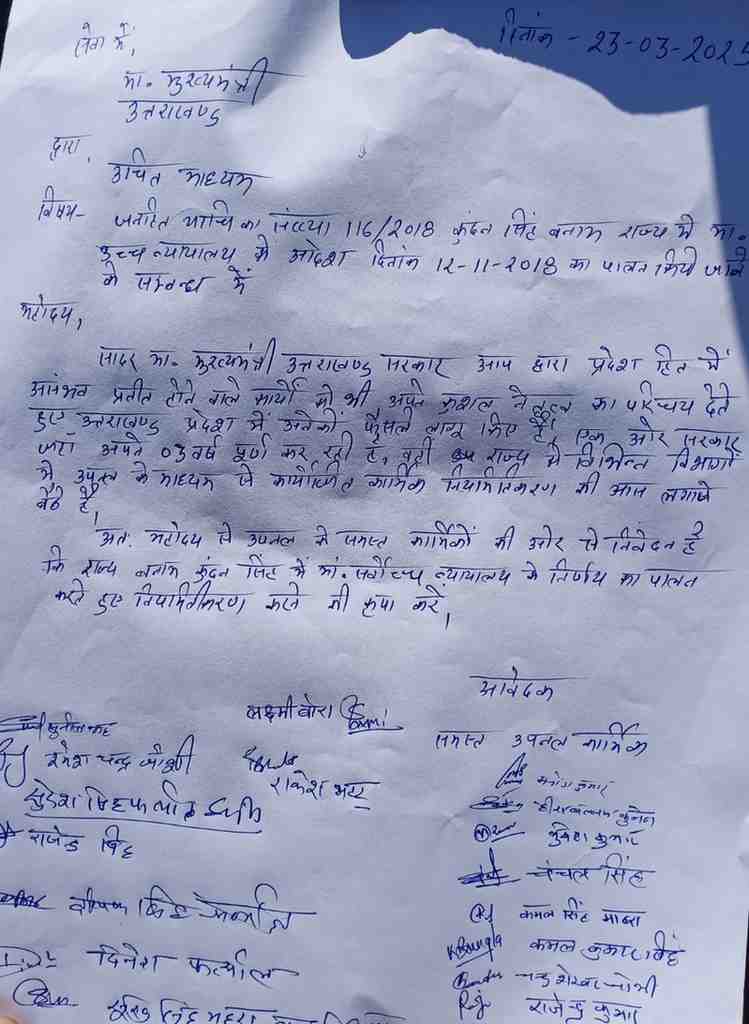 सेवा में,
दिनांक - 23-03-2025
मा. मुख्यमंत्री
उत्तराखण्ड
द्वारा,
उचित माध्यम
विषय- जनहित याचिका संख्या 116/2018 कुंदन सिंह बनाम राज्य में मा.
उच्च न्यायालय के आदेश दिनांक 12-11-2018 का पालन किये जाने
के सम्बन्ध में
महोदय,
सादर मा. मुख्यमंत्री उत्तराखण्ड सरकार आप द्वारा प्रदेश हित में
असंभव प्रतीत होने वाले कार्यों को भी अपने कुशल नेतृत्व का परिचय देते
हुए उत्तराखण्ड प्रदेश में अनेकों फैसले लागू किए हैं, एक ओर सरकार
जहाँ अपने 03 वर्ष पूर्ण कर रही है, वहीं राज्य में विभिन्न विभागों
में उपनल के माध्यम से कार्योजित कार्मिक नियमितिकरण की आस लगाये
बैठे हैं।
अतः महोदय से उपनल के समस्त कार्मिकों की ओर से निवेदन है
कि राज्य बनाम कुंदन सिंह में मां. सर्वोच्च न्यायालय के निर्णय का पालन
करते हुए नियमितीकरण करने की कृपा करें।
आवेदक
समस्त उपनल कार्मिक
लक्ष्मी बोरा
रमेश चन्द्र जोशी
राकेश भट्ट
राजेन्द्र सिंह
दिनेश फर्त्याल
मनोज कुमार
मुकेश कुमार
चंचल सिंह
कमल सिंह
कमल कुमार सिंह
राजेन्द्र कुमार